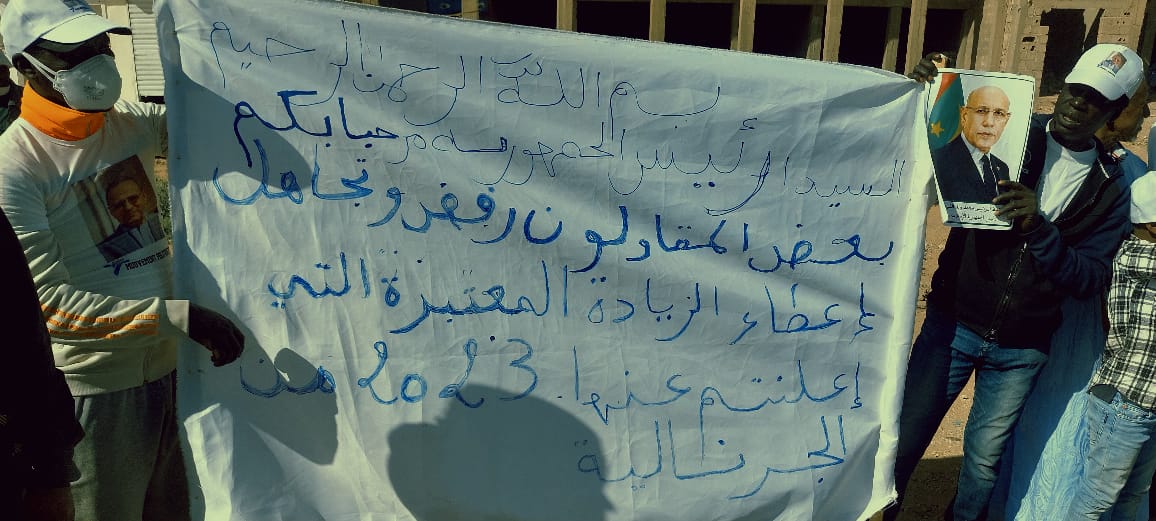 بسم الله الرحمن الرحيم
السيد الرئيس الجمهورية مرحبا بكم
بعض المقاولون رفض وتجاهل
إعطاء الزيادة المعتبرة التي
إعلنتم عنها. 2023 من
الجرنالية
MOUVEMENT